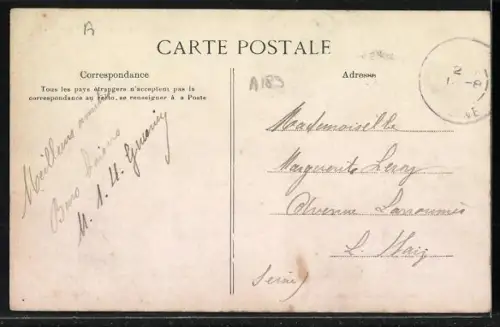 A
CARTE POSTALE
Correspondance
Tous les pays étrangers n'acceptent pas la
correspondance au recto, se renseigner à a Poste
A189
Adresse
Meilleurs
Bons baisers
M. A. H.
Mademoiselle
Marguerite Leroy
Avenue
L. Haÿ
Seine)